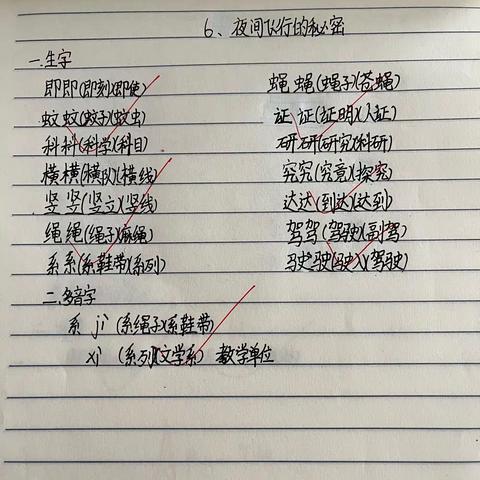 6、夜间飞行的秘密
一.生字
即即(即刻)(即使)
蚊蚊(蚊子)(蚊虫)
科科(科学)(科目)
横横(横队)(横线)
竖竖(竖立)(竖线)
绳绳(绳子)(麻绳)
系系(系鞋带)(系列)
蝇蝇(蝇子)(苍蝇)
证证(证明)(人证)
研研(研究)(科研)
究究(究竟)(探究)
达达(到达)(达到)
驾驾(驾驶)(副驾)
驶驶(驶入)(驾驶)
二.多音字
系 jì (系绳子)(系鞋带)
xì (系列)(文学系) 教学单位